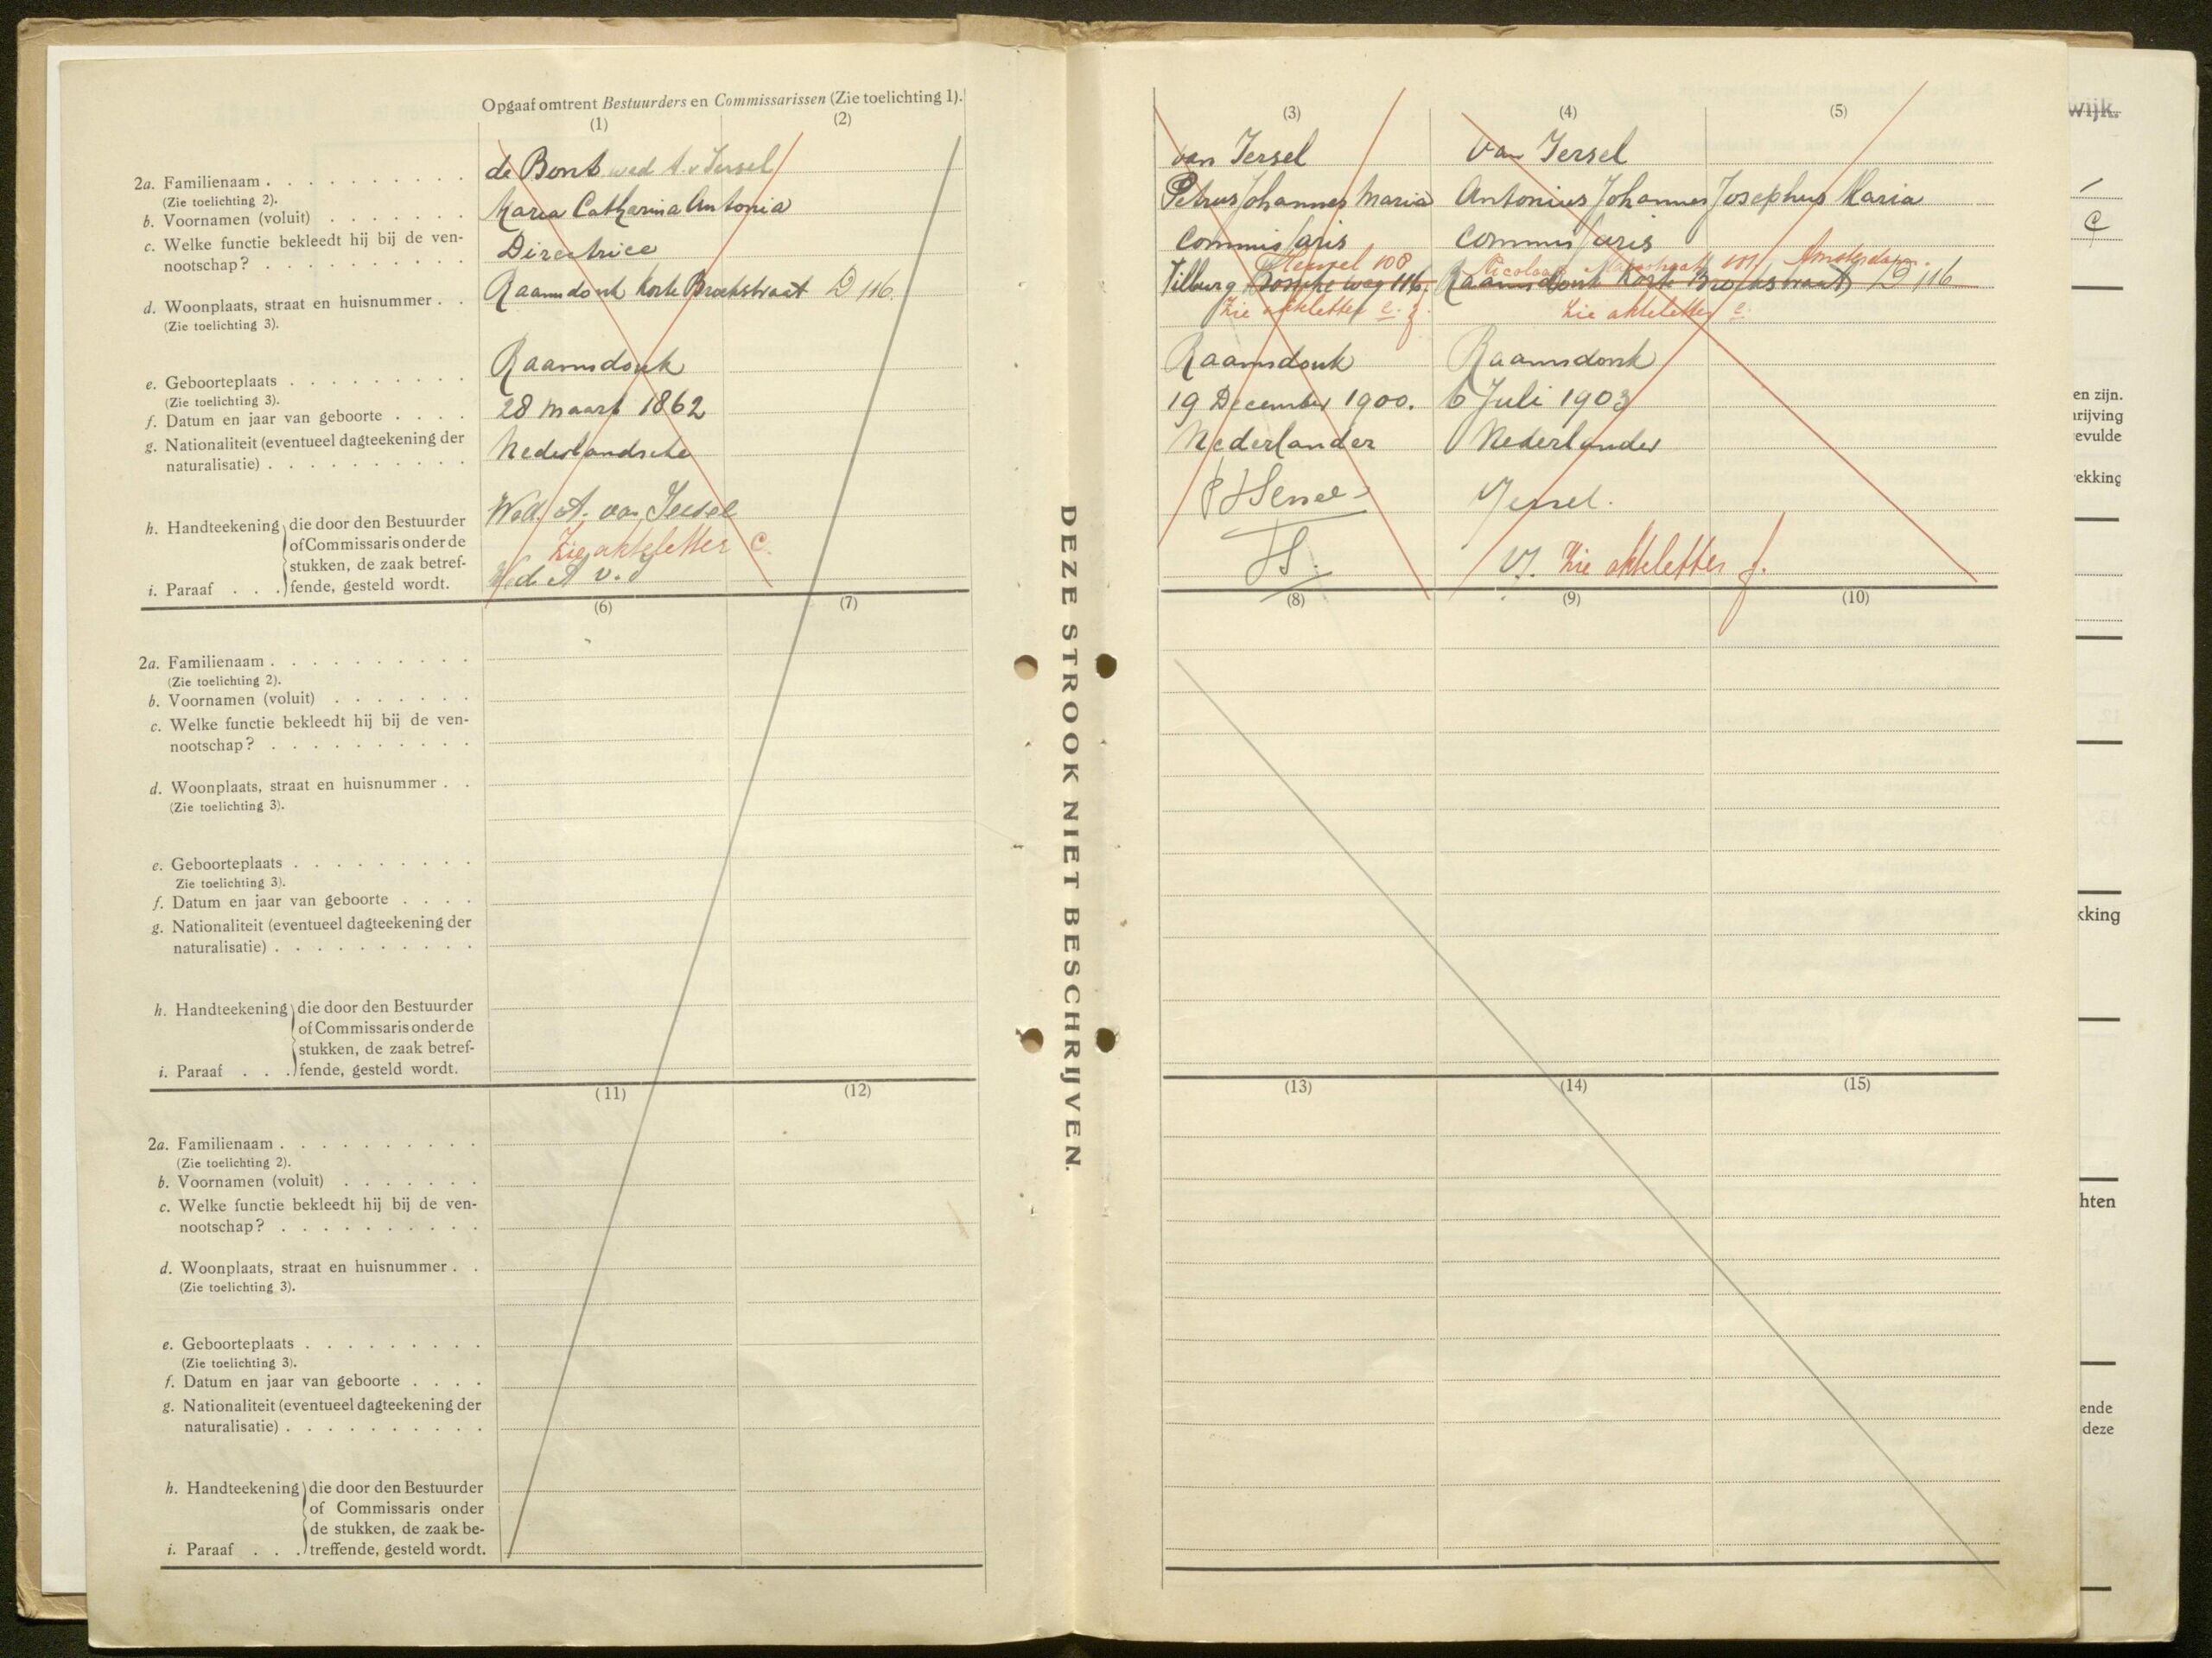 Opgaaf omtrent Bestuurders en Commissarissen (Zie toelichting 1).
(1) (2)
2a. Familienaam . . . . . . . . . . de Bont wed A. v Iersel
(Zie toelichting 2).
b. Voornamen (voluit) . . . . . . . Maria Catharina Antonia
c. Welke functie bekleedt hij bij de ven-
nootschap? . . . . . . . . . . Directrice
d. Woonplaats, straat en huisnummer . . Raamsdonk Korte Broekstraat D 116.
(Zie toelichting 3).
e. Geboorteplaats . . . . . . . . . Raamsdonk
(Zie toelichting 3).
f. Datum en jaar van geboorte . . . . 28 Maart 1862
g. Nationaliteit (eventueel dagteekening der
naturalisatie) . . . . . . . . . . Nederlandsche
h. Handteekening die door den Bestuurder Wed. A. van Iersel
of Commissaris onder de Zie akteletter c.
stukken, de zaak betref-
i. Paraaf . . . fende, gesteld wordt. Wed A v. J
(6) (7)
2a. Familienaam . . . . . . . . . .
(Zie toelichting 2).
b. Voornamen (voluit) . . . . . . .
c. Welke functie bekleedt hij bij de ven-
nootschap? . . . . . . . . . .
d. Woonplaats, straat en huisnummer . .
(Zie toelichting 3).
e. Geboorteplaats . . . . . . . . .
Zie toelichting 3).
f. Datum en jaar van geboorte . . . .
g. Nationaliteit (eventueel dagteekening der
naturalisatie) . . . . . . . . . .
h. Handteekening die door den Bestuurder
of Commissaris onder de
stukken, de zaak betref-
i. Paraaf . . . fende, gesteld wordt.
(11) (12)
2a. Familienaam . . . . . . . . . .
(Zie toelichting 2).
b. Voornamen (voluit) . . . . . . .
c. Welke functie bekleedt hij bij de ven-
nootschap? . . . . . . . . . .
d. Woonplaats, straat en huisnummer . .
(Zie toelichting 3).
e. Geboorteplaats . . . . . . . . .
(Zie toelichting 3).
f. Datum en jaar van geboorte . . . .
g. Nationaliteit (eventueel dagteekening der
naturalisatie) . . . . . . . . . .
h. Handteekening die door den Bestuurder
of Commissaris onder
de stukken, de zaak be-
i. Paraaf . . . treffende, gesteld wordt.
DEZE STROOK NIET BESCHRIJVEN.
(3) (4) (5)
van Iersel Van Iersel
Petrus Johannes Maria Antonius Johannes Josephus Maria
Commissaris Commissaris
Heuvel 108 Nicolaas Maesstraat 101 Amsterdam.
Tilburg Bossche weg 116. Raamsdonk Korte Broekstraat D 116
Zie akteletter e. Zie akteletter e.
Raamsdonk Raamsdonk
19 December 1900. 6 Juli 1903
Nederlander Nederlander
VJ. Zie akteletter f.
(8) (9) (10)
(13) (14) (15)
wijk.
c
en zijn.
rijving
evulde
ekking
kking
hten
ende
deze